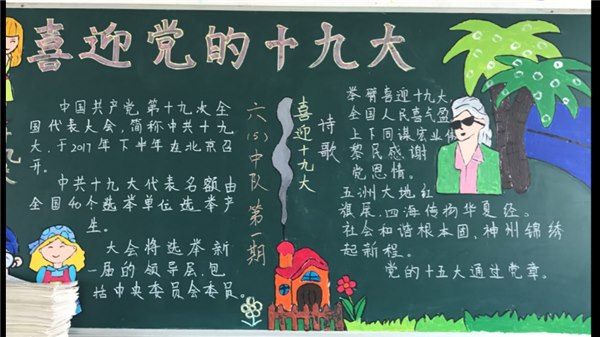 喜迎党的十九大
中国共产党第十九次全
国代表大会，简称中共十九
大，于2017年下半年在北京召
开。
中共十九大代表名额由
全国40个选举单位选举产
生。
大会将选举新
一届的领导层，包
括中央委员会委员。
六（5）中队第一期
喜迎十九大
诗歌
举臂喜迎十九大，
全国人民喜气盈
上下同谋宏业体
黎民感谢
党恩情。
五洲大地红
旗展，四海传扬华夏经。
社会和谐根本固，神州锦绣
起新程。
党的十五大通过党章。